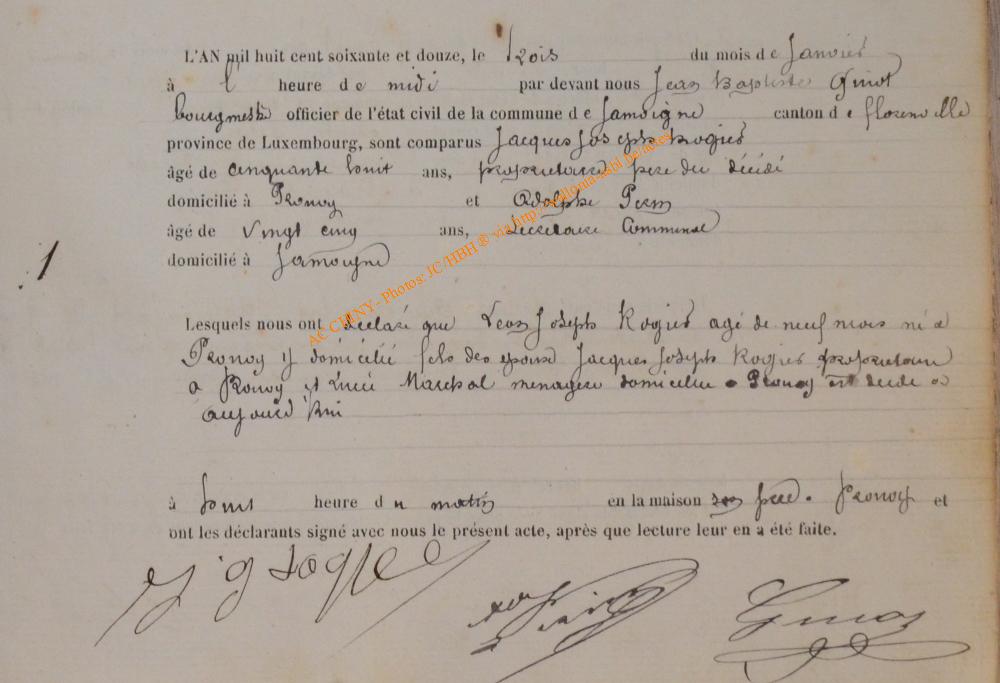 L'AN mil huit cent soixante et douze, le trois du mois de Janvier
à l' heure de midi par devant nous Jean Baptiste Guiot
bourgmestre officier de l'état civil de la commune de Jamoigne canton de florenville
province de Luxembourg, sont comparus Jacques Joseph Rogier
âgé de cinquante huit ans, proprietaire pere du décédé
domicilié à Pronoy et Adolphe
âgé de vingt cinq ans, Secretaire Communal
domicilié à Jamoigne
1
Lesquels nous ont declaré que Leon Joseph Rogier agé de neuf mois né a
Pronoy y domicilié fils des epoux Jacques Joseph Rogier proprietaire
a Pronoy et Marechal menagere domiciliee a Pronoy est decede
aujourd'hui
à heure du matin en la maison pere a Pronoy et
ont les déclarants signé avec nous le présent acte, après que lecture leur en a été faite.
AC CHINY - Photos: JC/HBH ® via